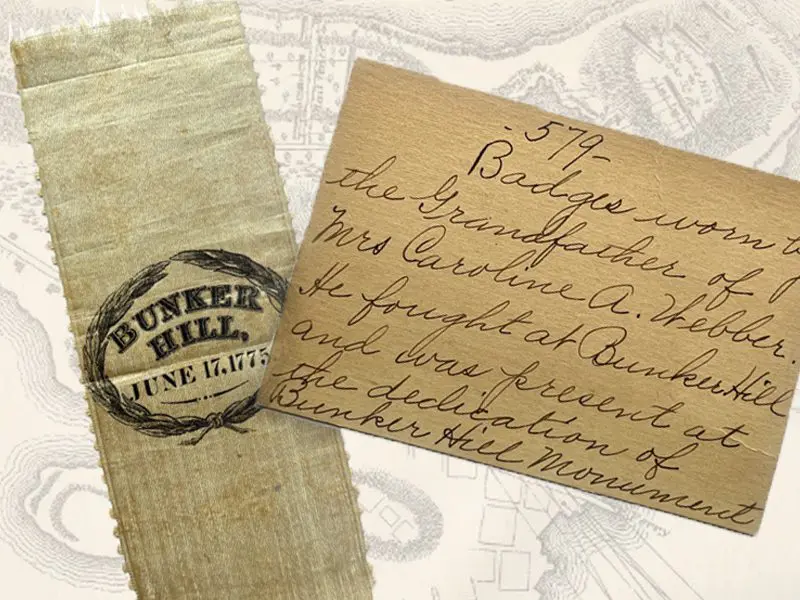 BUNKER
HILL,
JUNE 17, 1775
- 579 -
Badges worn by
the Grandfather of
Mrs Caroline A. Webber.
He fought at Bunker Hill
and was present at
the dedication of
Bunker Hill Monument